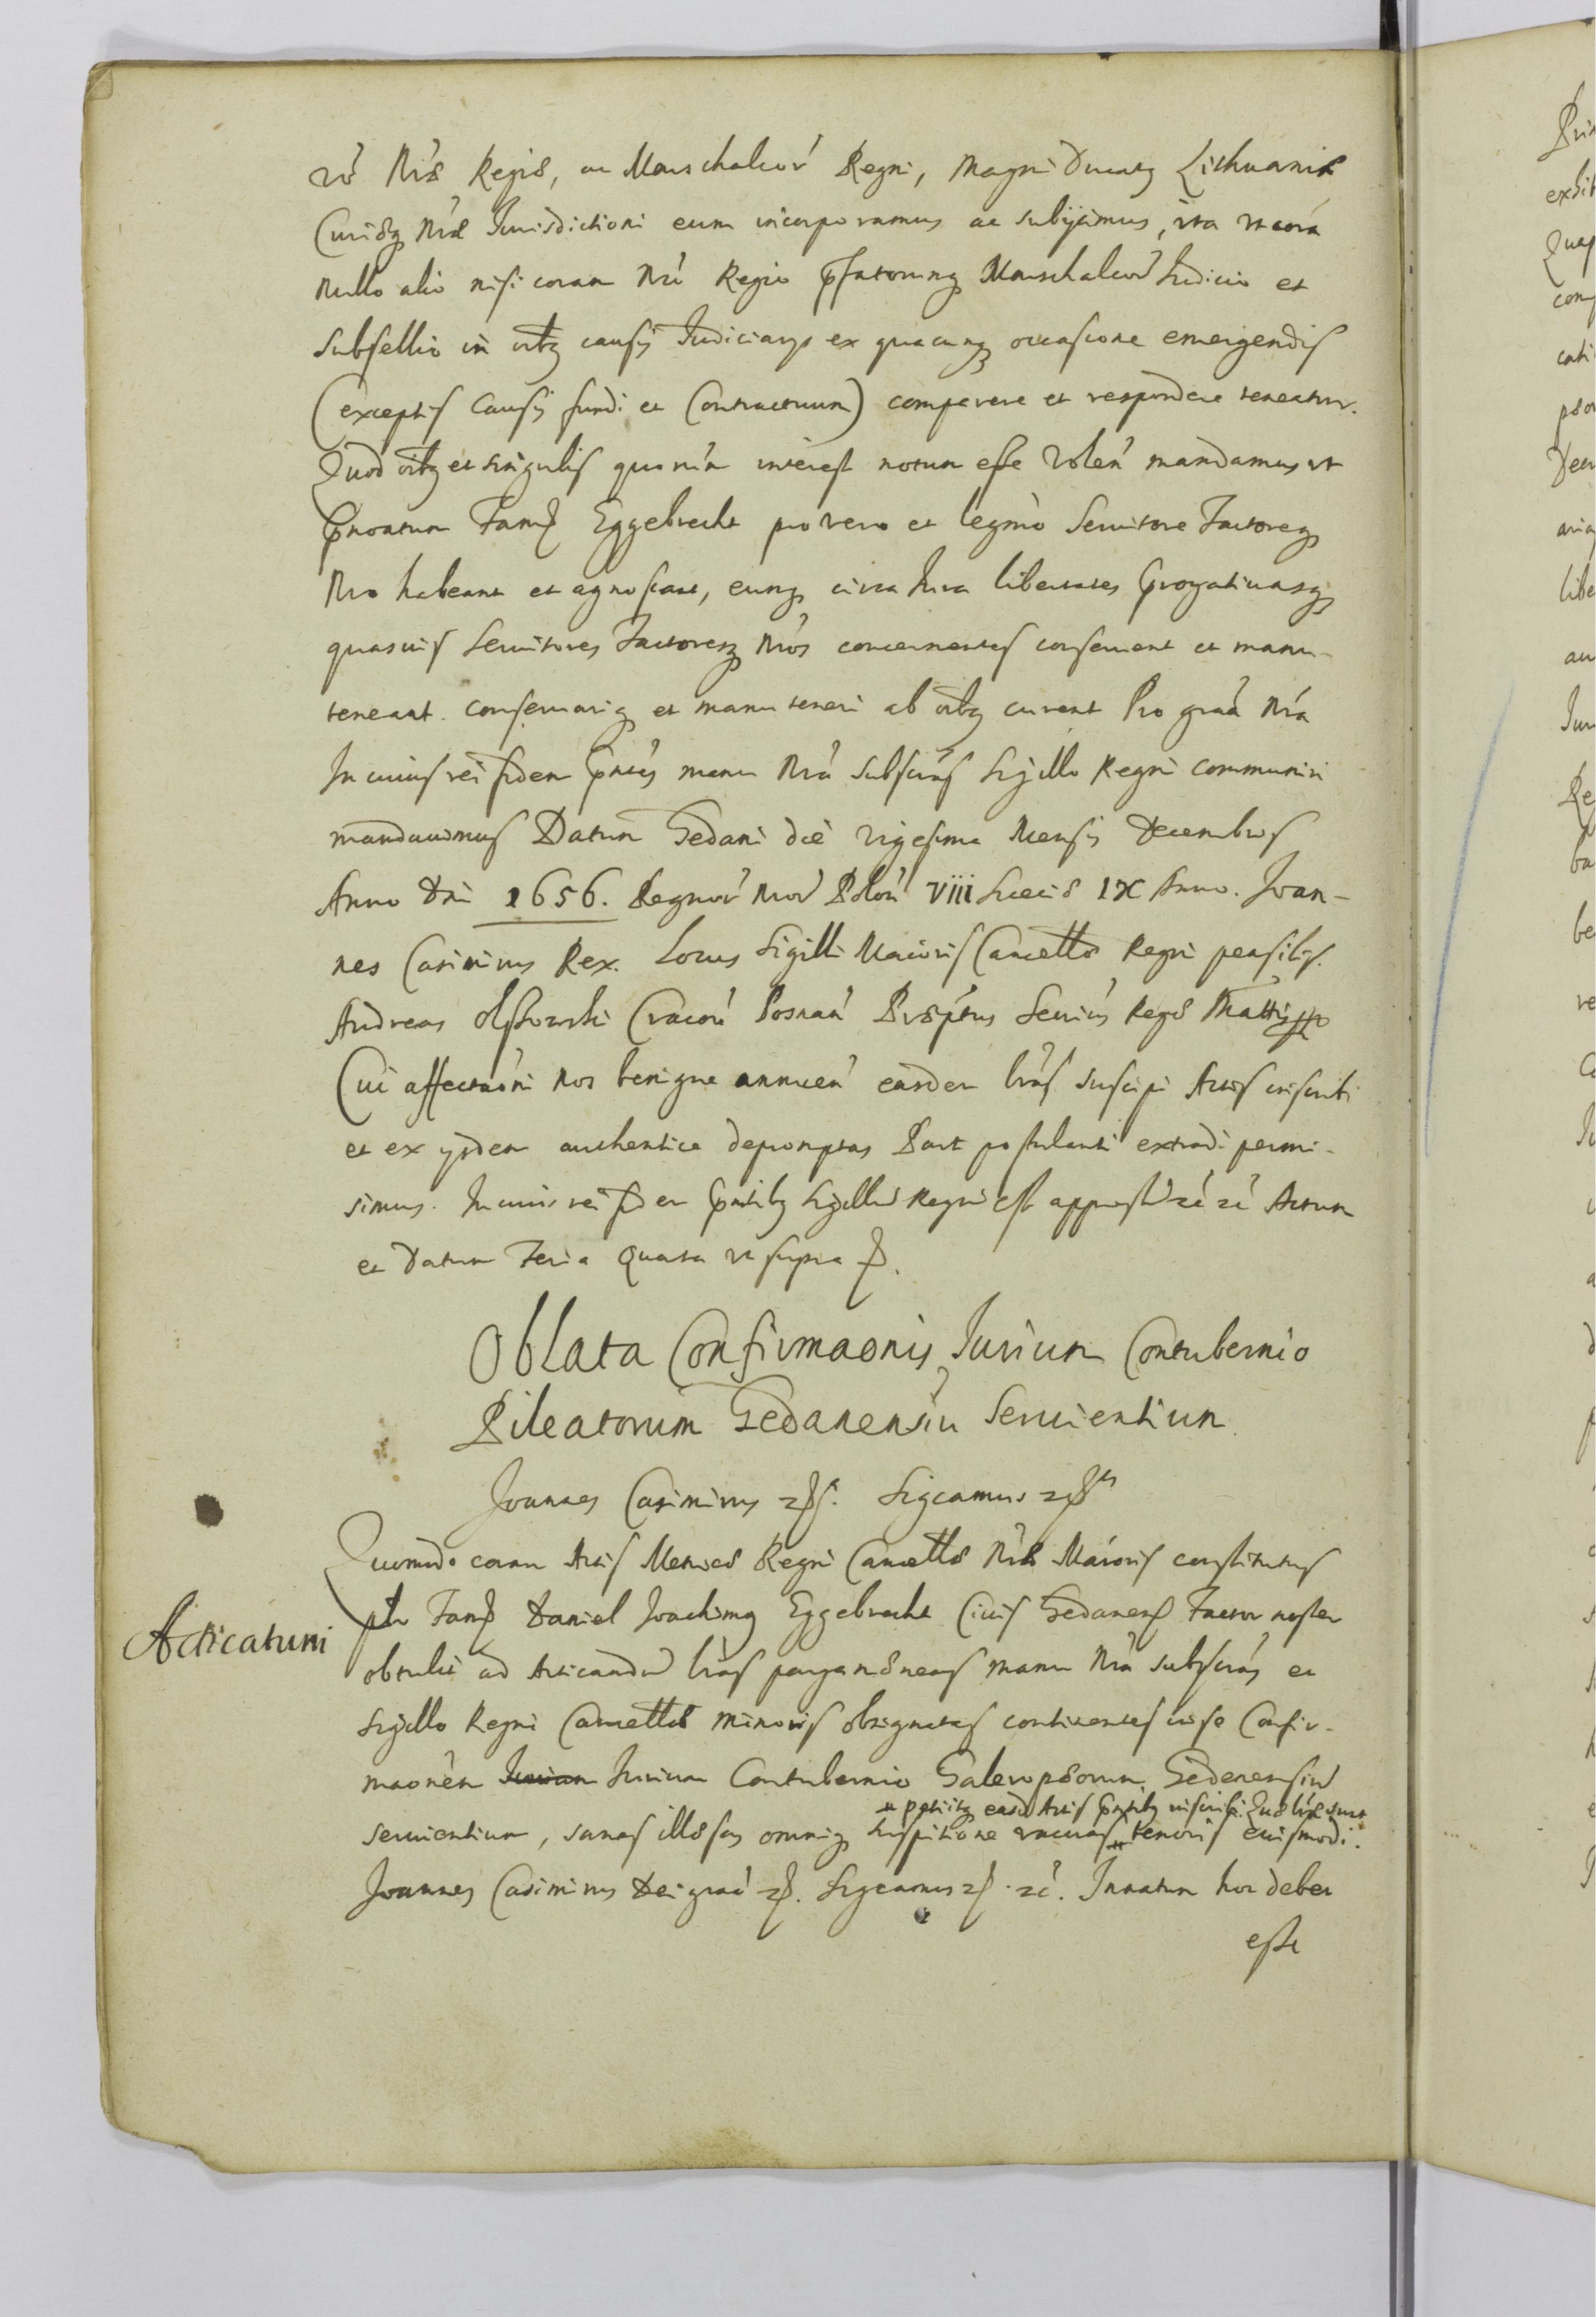 Nr̃æ Regiæ, ac Marschalcor̃ Regni, Magni Ducatq Lithuaniæ
Curiæq Nr̃æ Jurisdictioni eum incorporamus ac subijcimus, ita vt corã
nullo alio nisi coram Nr̃o Regio p̃fatorumq Marschalcor̃ Judicio et
subsellio in oĩbq causis Judiciarys ex quacunq occasione emergendis
(exceptis Causis fundi et Contractuum) comparere et respondere teneatur.
Quod oĩbq et singulis quorũm interest notum esse volen̄ mandamus vt
p̃noatum Fam. Eggebrecht pro vero et legmo Servitore Factoreq
Nro habeant et agnoscant, eumq circa Jura libertates p̃rogatiuasq
quasuis Seruitores Factoresq Nr̃os concernentes conseruent et manu-
teneant. conseruariq et manuteneri ab oĩbq curent Pro gra̅a Nr̃a
In cuius rei fidem p̃ntes manu Nr̃a subscr̃as Sigillo Regni communiri
mandauimus Datum Gedani die vigesima Mensis Decembris
Anno Dni 1656. Regnor̃ Nror̃ Polon̄ VIII Sueciæ IX Anno. Joan-
nes Casimirus Rex. Locus Sigilli Maioris Cancellæ Regni pensilis.
Andreas Olszowski Cracou̅ Posnan̄ Præp̃tus Secrius Regiæ Mattis
Cui affectao̅ni nos benigne annuen̄ easdem lr̃as suscipi Actis inscribi
et ex ijsdem authentice depromptas Part postulanti extradi permi-
simus. In cuius rei fidem p̃ntibq Sigillũ Regni est appressũ etc̃ etc̃ Actum
et Datum Feria Quarta vt supra
Oblata Confirmaonis Jurium Contubernio
Pileatorum Gedanensiũ Seruientium
Joannes Casimirus etc. Sigcamus etc
Quomodo coram Actis Metrices Regni Cancellæ Nr̃æ Maioris constitutus
Fam. Daniel Joachimq Eggebrecht Ciuis Gedanen. Factor noster
Acticatum
obtulit ad Acticandũ lr̃as pargameneas manu Nr̃a subscr̃as et
Sigillo Regni Cancellæ minoris obsignatas continentes in se Confir-
mao̅nem Jurium Jurium Contubernio Galeropæorum Gedanensiũ
petiitq easd̃ Actis p̃ntibq inscribi. Quæ lr̃æ sunt
seruientium, sanas illæsas omniq suspitione vacuas tenoris eiusmodi.
Joannes Casimirus Dei gra̅a etc. Sigcamus etc. etc̃. Innatum hoc debet
esse